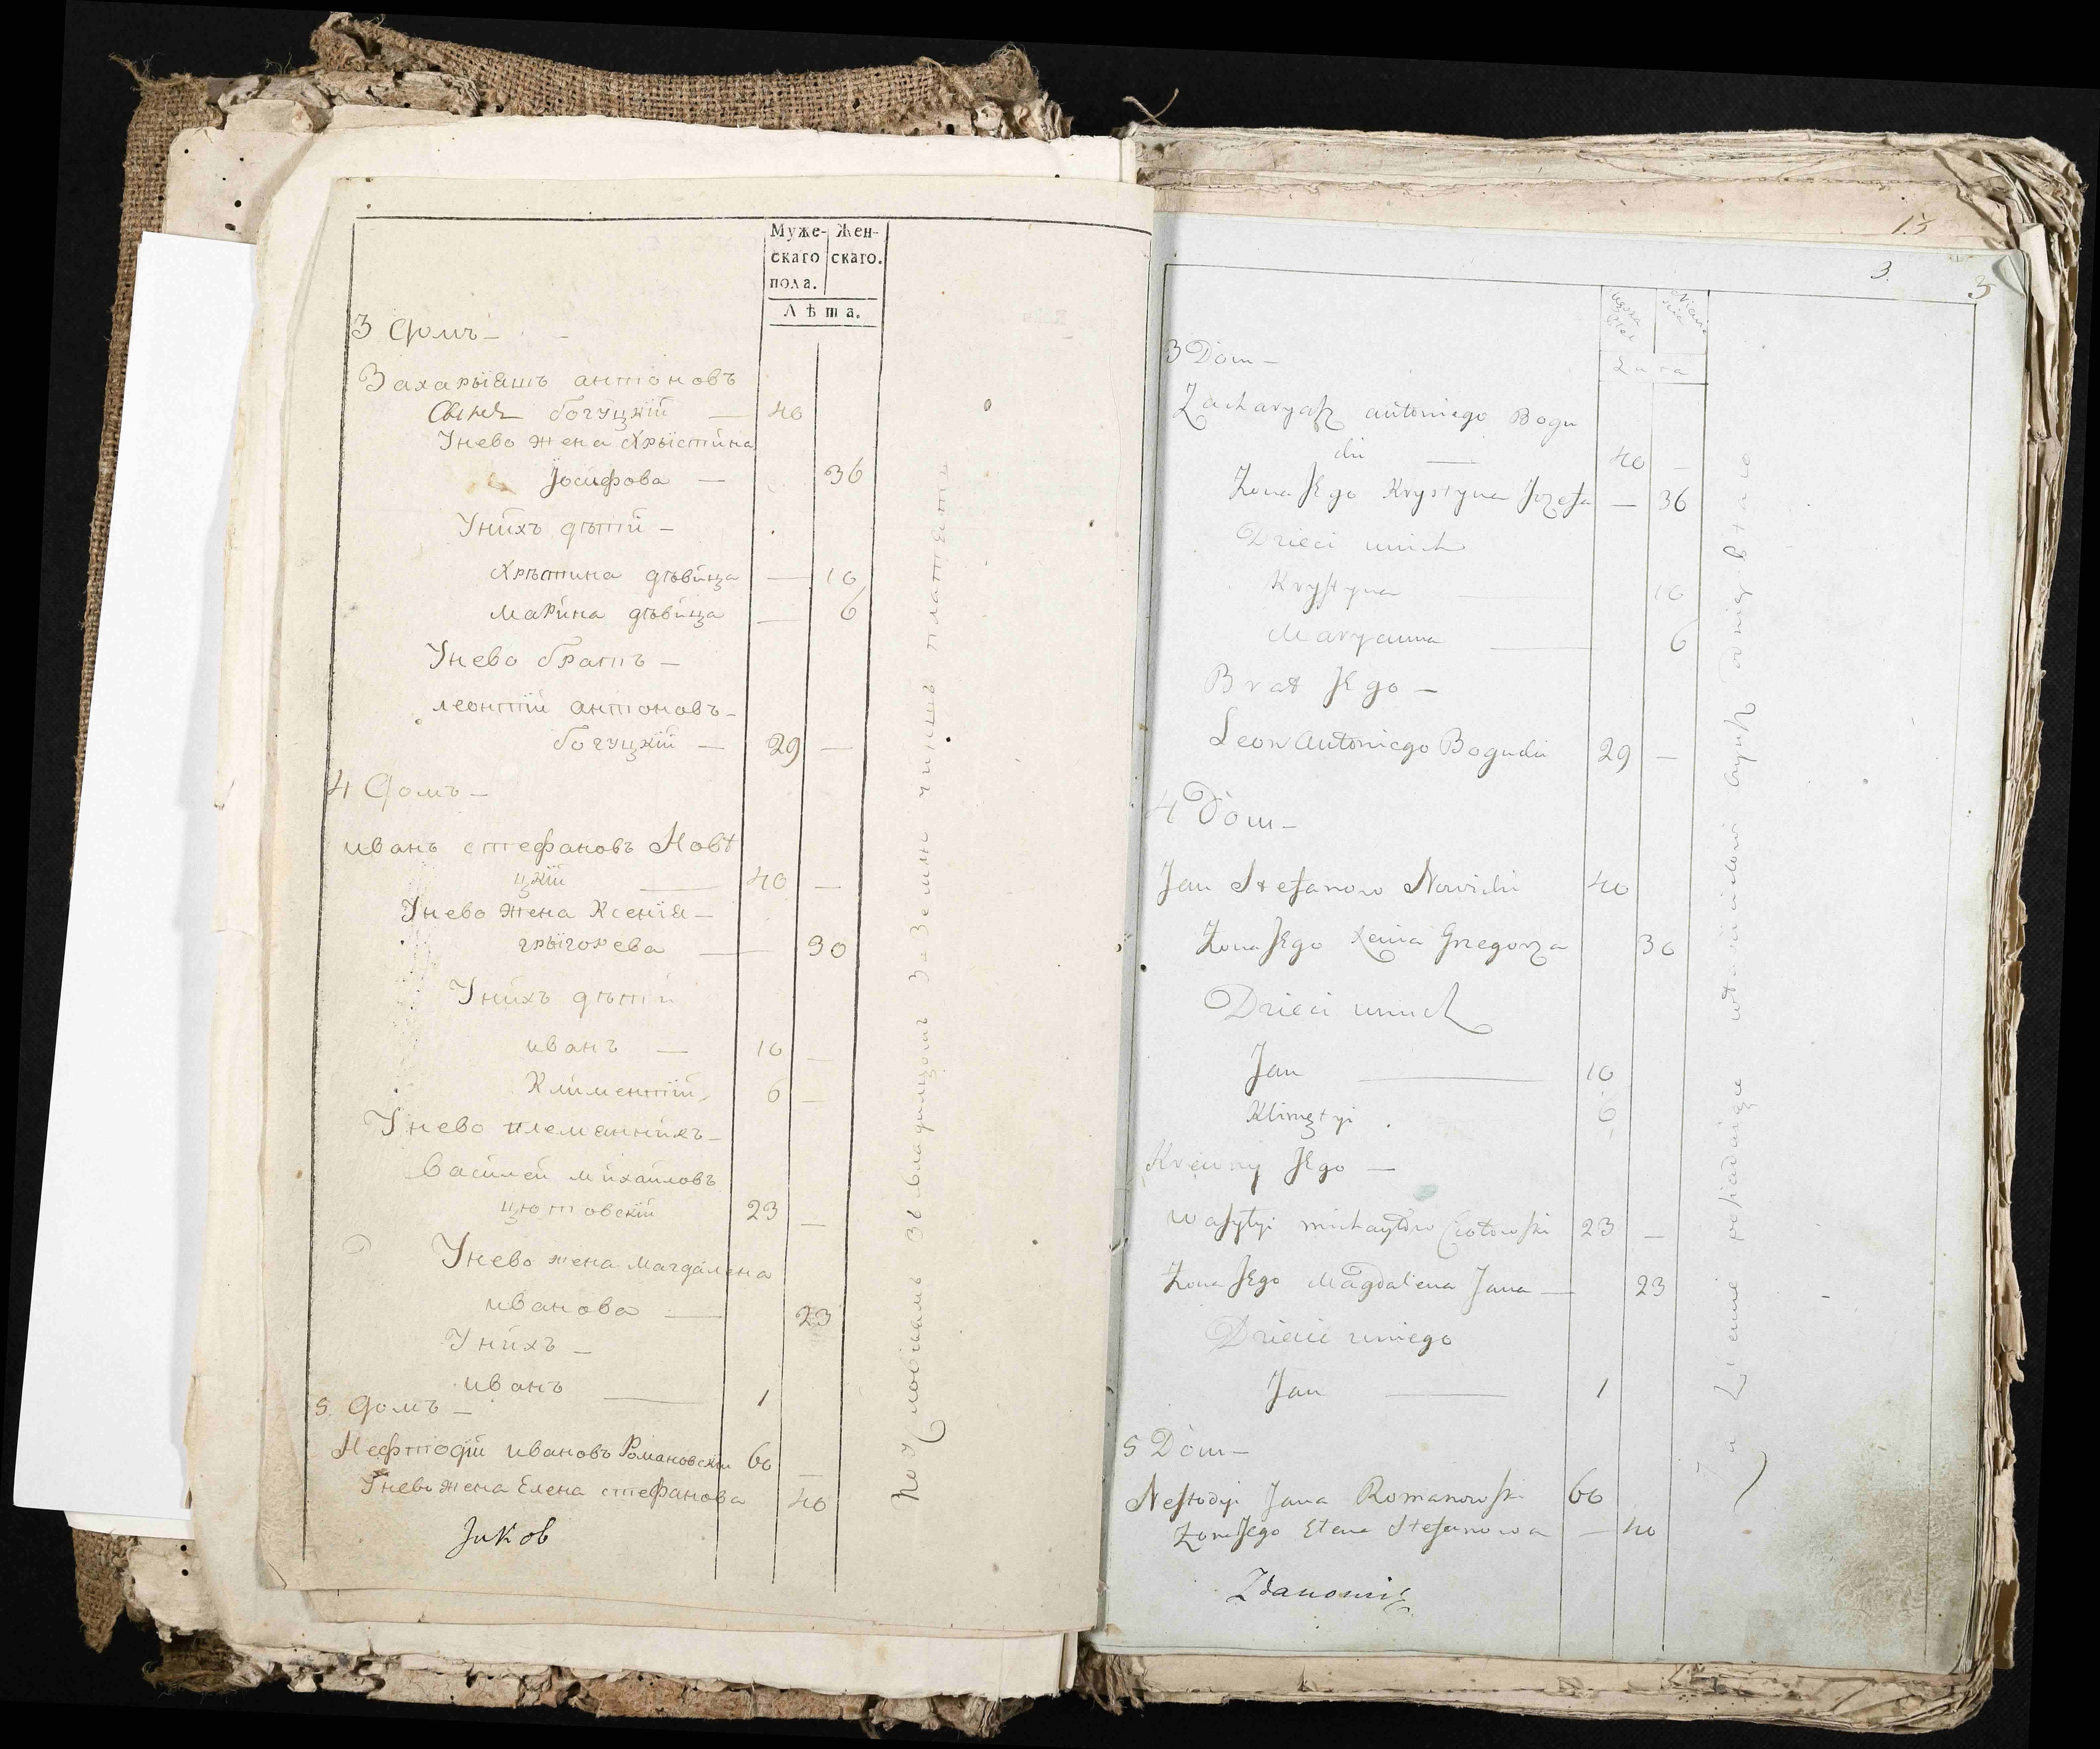 Муже-
скаго
пола.
Жен-
скаго.
Лѣта.
3 Домъ —
Захарыяшъ антоновъ
Сынъ богуцкiй — 40
Унево жена Хрыстина
Јосифова — 36
Унихъ дѣтiй —
Хрыстина дѣвица — 10
Марина дѣвица — 6
Унево братъ —
леонтiй антоновъ —
богуцкiй — 29 —
4 Домъ —
иванъ стефановъ Новѣ
цкiй — 40 —
Унево жена Ксенiя —
грыгорева — 30
Унихъ дѣтiй
иванъ — 10 —
Климентiй 6 —
Унево племанникъ —
Василей михайловъ
цютовскiй 23 —
Унево жена Магдалена
иванова — 23
Унихъ —
иванъ — 1
5 Домъ —
Нефтодiй ивановъ Романовскiй 60 —
Унево жена Елена стефанова 40
Јиков
за Землю чиншъ платятъ
13
3.
3
Lata
3 Dom —
Zacharyasz antoniego Bogu
cki — 40 —
Zona Jego Krystyna Jozefa — 36
Dzieci unich
Krystyna — 10
Maryanna — 6
Brat Jego —
Leon Antoniego Bogucki 29 —
4 Dom —
Jan Stefanow Nowicki 40
Zona Jego Xenia Grzegorza 30
Dzieci unich
Jan — 10
Klimętyi 6
Krewny Jego —
Wasylyi michayłow Ciotowski 23 —
Zona Jego Magdalena Jana — 23
Dziecie uniego
Jan — 1
5 Dom —
Nestodyi Jana Romanowski 60
Zona Jego Elena Stefanowa — 40
Zdanowicz